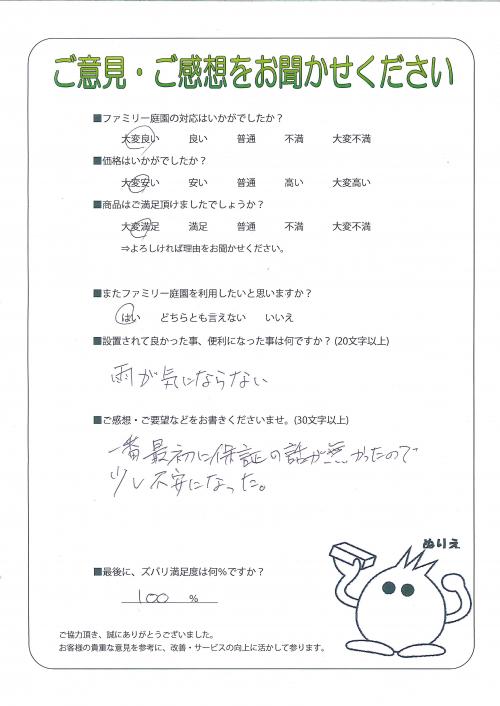 ご意見・ご感想をお聞かせください
■ファミリー庭園の対応はいかがでしたか？
大変良い 良い 普通 不満 大変不満
■価格はいかがでしたか？
大変安い 安い 普通 高い 大変高い
■商品はご満足頂けましたでしょうか？
大変満足 満足 普通 不満 大変不満
⇒よろしければ理由をお聞かせください。
■またファミリー庭園を利用したいと思いますか？
はい どちらとも言えない いいえ
■設置されて良かった事、便利になった事は何ですか？(20文字以上)
雨が気にならない
■ご感想・ご要望などをお書きくださいませ。(30文字以上)
一番最初に保証の話が無かったので
少し不安になった。
ぬりえ
■最後に、ズバリ満足度は何％ですか？
100 %
ご協力頂き、誠にありがとうございました。
お客様の貴重な意見を参考に、改善・サービスの向上に活かして参ります。